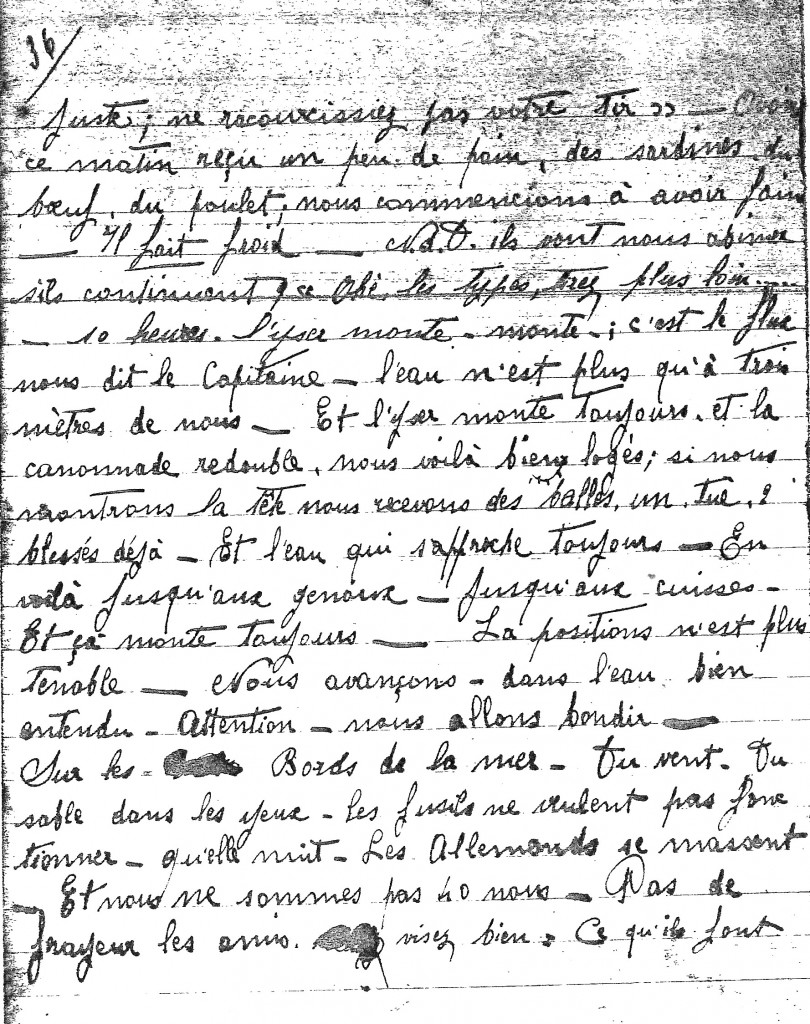 36/
juste; ne raccourcissiez pas votre tir » — Avoir
ce matin reçu un peu de pain, des sardines, du
bœuf, du poulet; nous commencions à avoir faim
— Il fait froid — N.d.D. ils vont nous abimer
s'ils continuent Ohé, les types, tirez plus loin....
— 10 heures. l'yser monte - monte -; c'est le flux
nous dit le Capitaine — l'eau n'est plus qu'à trois
mètres de nous — Et l'yser monte toujours. et la
canonnade redouble, nous voilà bien logés; si nous
montrons la tête nous recevons des balles, un tué, 2
blessés déjà — Et l'eau qui s'approche toujours — En
voilà jusqu'aux genoux — jusqu'aux cuisses -
Et ça monte toujours — La positions n'est plus
tenable — Nous avançons - dans l'eau bien
entendu - Attention - nous allons bondir —
Sur les Bords de la mer - Du vent - Du
sable dans les yeux - les fusils ne veulent pas fonc
tionner - qu'elle nuit - Les Allemands se massent
— Et nous ne sommes pas 40 nous — Pas de
frayeur les amis. visez bien. Ce qu'ils font